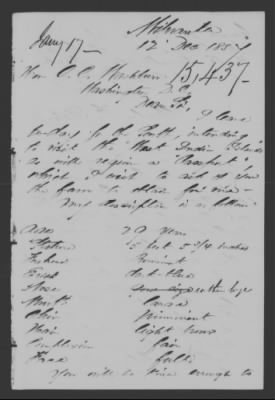 Jany 17 —
Milwaukee
12 Dec 1857
15,437 —
Hon C. C. Washburn
Washington D. C.
Dear Sir,
I leave
to day for the South, intending
to visit the West India Islands
& will require a "Passport",
which I wish to ask of you
the favor to obtain for me —
My description is as follows
Age 29 years
Stature 5 feet 5 3/4 inches
Forehead Prominent
Eyes dark blue
Nose rather large
Mouth Large
Chin Prominent
Hair light brown
Complexion Fair
Face full
You will be kind enough to